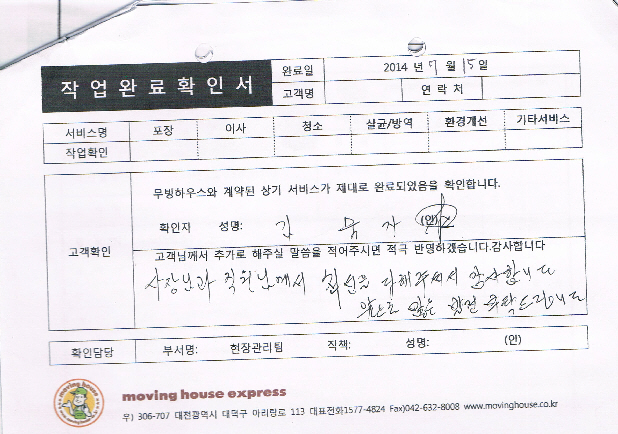 작업완료확인서
완료일 2014 년 7 월 15일
고객명 연 락 처
서비스명 포장 이사 청소 살균/방역 환경개선 기타서비스
작업확인
고객확인
무빙하우스와 계약된 상기 서비스가 제대로 완료되었음을 확인합니다.
확인자 성명: 김 (인)
고객님께서 추가로 해주실 말씀을 적어주시면 적극 반영하겠습니다.감사합니다
사장님과 직원님에서 최선을 다해주셔서 감사합니다
앞으로 많은 발전 부탁드립니다
확인담당 부서명: 현장관리팀 직책: 성명: (인)
moving house
moving house express
우) 306-707 대전광역시 대덕구 아리랑로 113 대표전화1577-4824 Fax)042-632-8008 www.movinghouse.co.kr